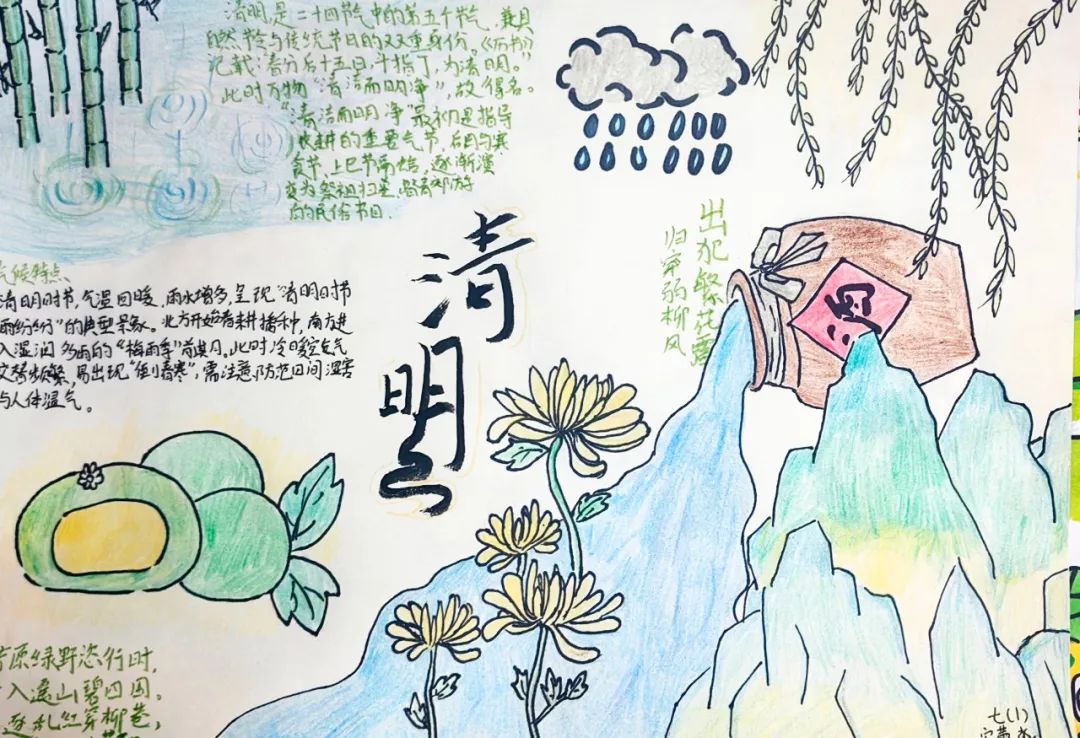 清明,是二十四节气中的第五个节气,兼具
自然节气与传统节日的双重身份。《历书》
记载:春分后十五日,斗指丁,为清明。"
此时万物"清洁而明净",故得名。
"清洁而明净"最初是指导
农耕的重要气节,后因与寒
食节,上巳节融合,逐渐演
变为祭祖扫墓,踏青郊游
的民俗节日.
清明
出犯繁花露
归穿弱柳风
酒
气候特点
清明时节,气温回暖,雨水增多,呈现"清明时节
雨纷纷"的典型景象。北方开始春耕播种,南方进
入湿润多雨的"梅雨季"前期。此时冷暖空气
交替频繁,易出现"倒春寒",需注意防范田间湿害
与人体湿气。
原绿野恣行时,
入遥山碧四围。
逐乱红穿柳巷,
七(1)